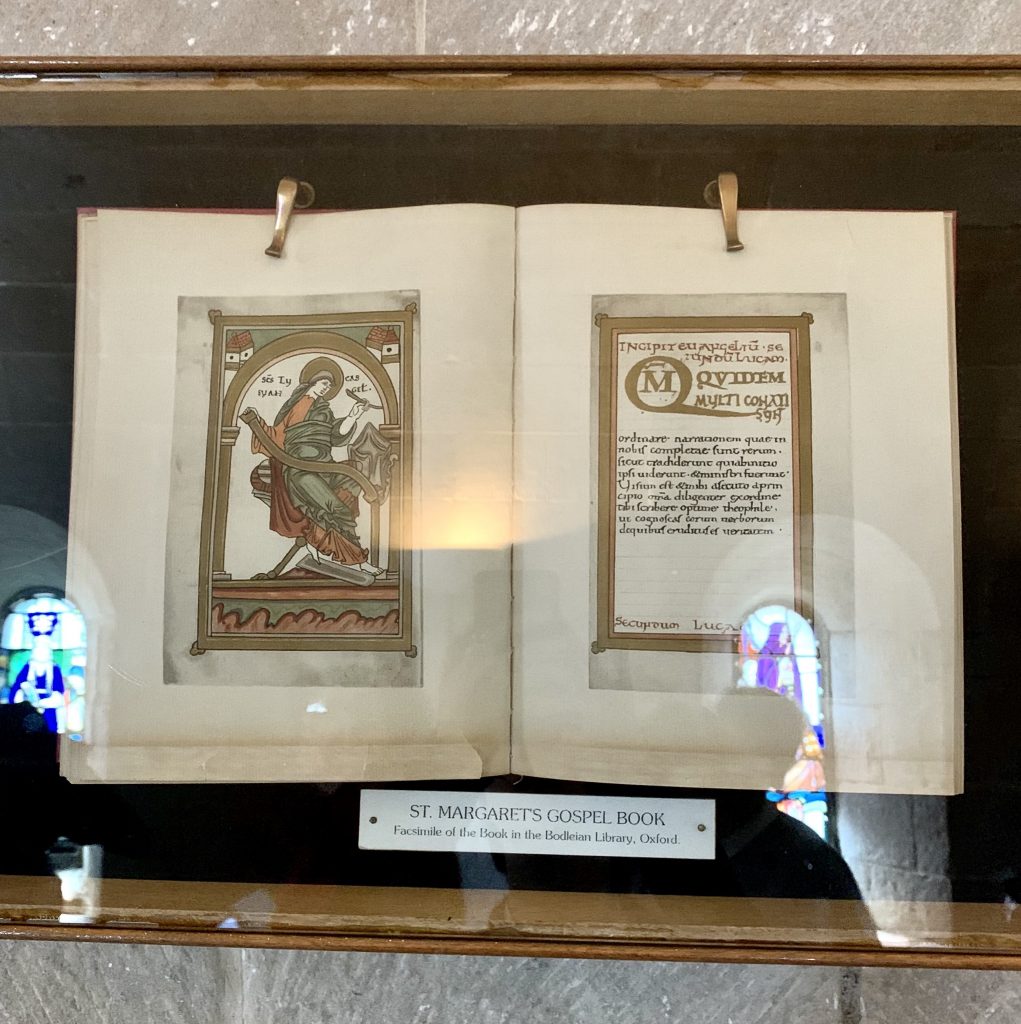 SC̄S LV CAS
EVAN GEL·
INCIPIT EVANGELIŪ · SE
CUNDŪ LUCAM.
QM̄ QVIDEM
MVLTI CONATI
SUNT
ordinare narrationem quae in
nobis completae sunt rerum.
sicut tradiderunt qui ab initio
ipsi uiderunt. & ministri fuerunt
Uisum est & mihi assecuto a prin
cipio om̄a diligenter ex ordine
tibi scribere optime theophile.
ut cognoscas eorum uerborum
de quibus eruditus es ueritatem.
SECUNDUM LUCA
ST. MARGARET'S GOSPEL BOOK
Facsimile of the Book in the Bodleian Library, Oxford.